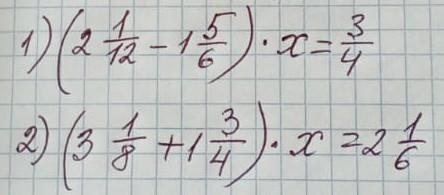 1) (2 1/12 - 1 5/6) · x = 3/4
2) (3 1/8 + 1 3/4) · x = 2 1/6